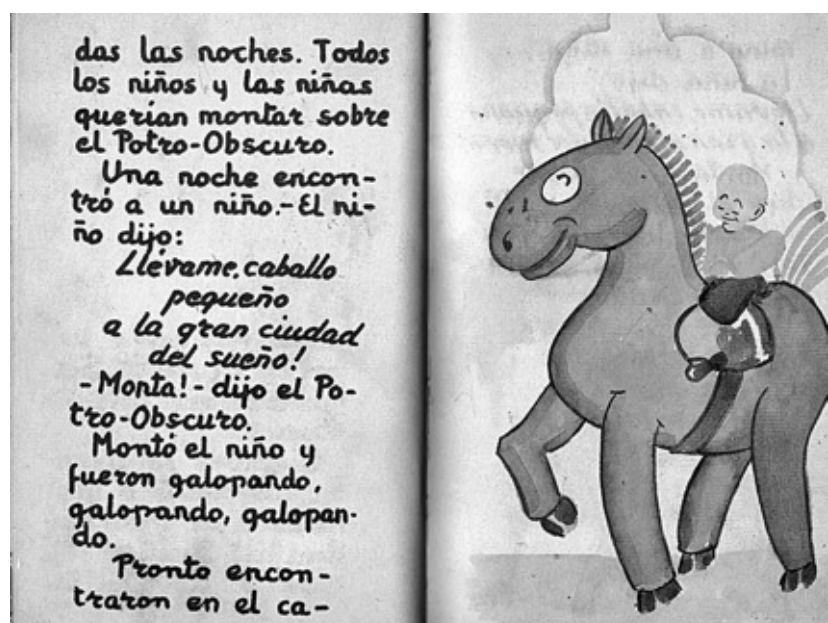 das las noches. Todos
los niños y las niñas
querian montar sobre
el Potro-Obscuro.
Una noche encon-
tró a un niño.-El ni-
ño dijo:
Llévame, caballo
pequeño
a la gran ciudad
del sueño!
-Monta!- dijo el Po-
tro-Obscuro.
Montó el niño y
fueron galopando,
galopando, galopan-
do.
Pronto encon-
traron en el ca-